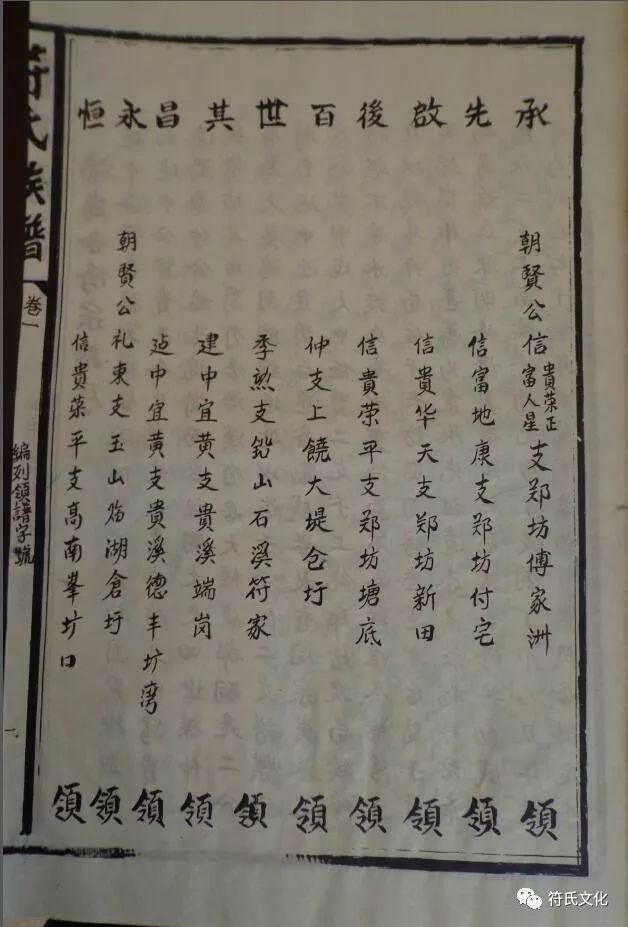 承 朝賢公信貴荣正富人星支郑坊傅家洲 領
先 信富地康支郑坊付宅 領
啟 信貴华天支郑坊新田 領
後 信貴荣平支郑坊塘底 領
百 仲支上饒大堤仓圩 領
世 季勲支鉛山石溪符家 領
其 建中宜黄支貴溪端岗 領
昌 廸中宜黄支貴溪德丰圹湾 領
永 朝賢公礼東支玉山临湖倉圩 領
恒 信貴荣平支高南峯圹口 領
符氏族譜
卷一
編列領譜字號
一
符氏文化